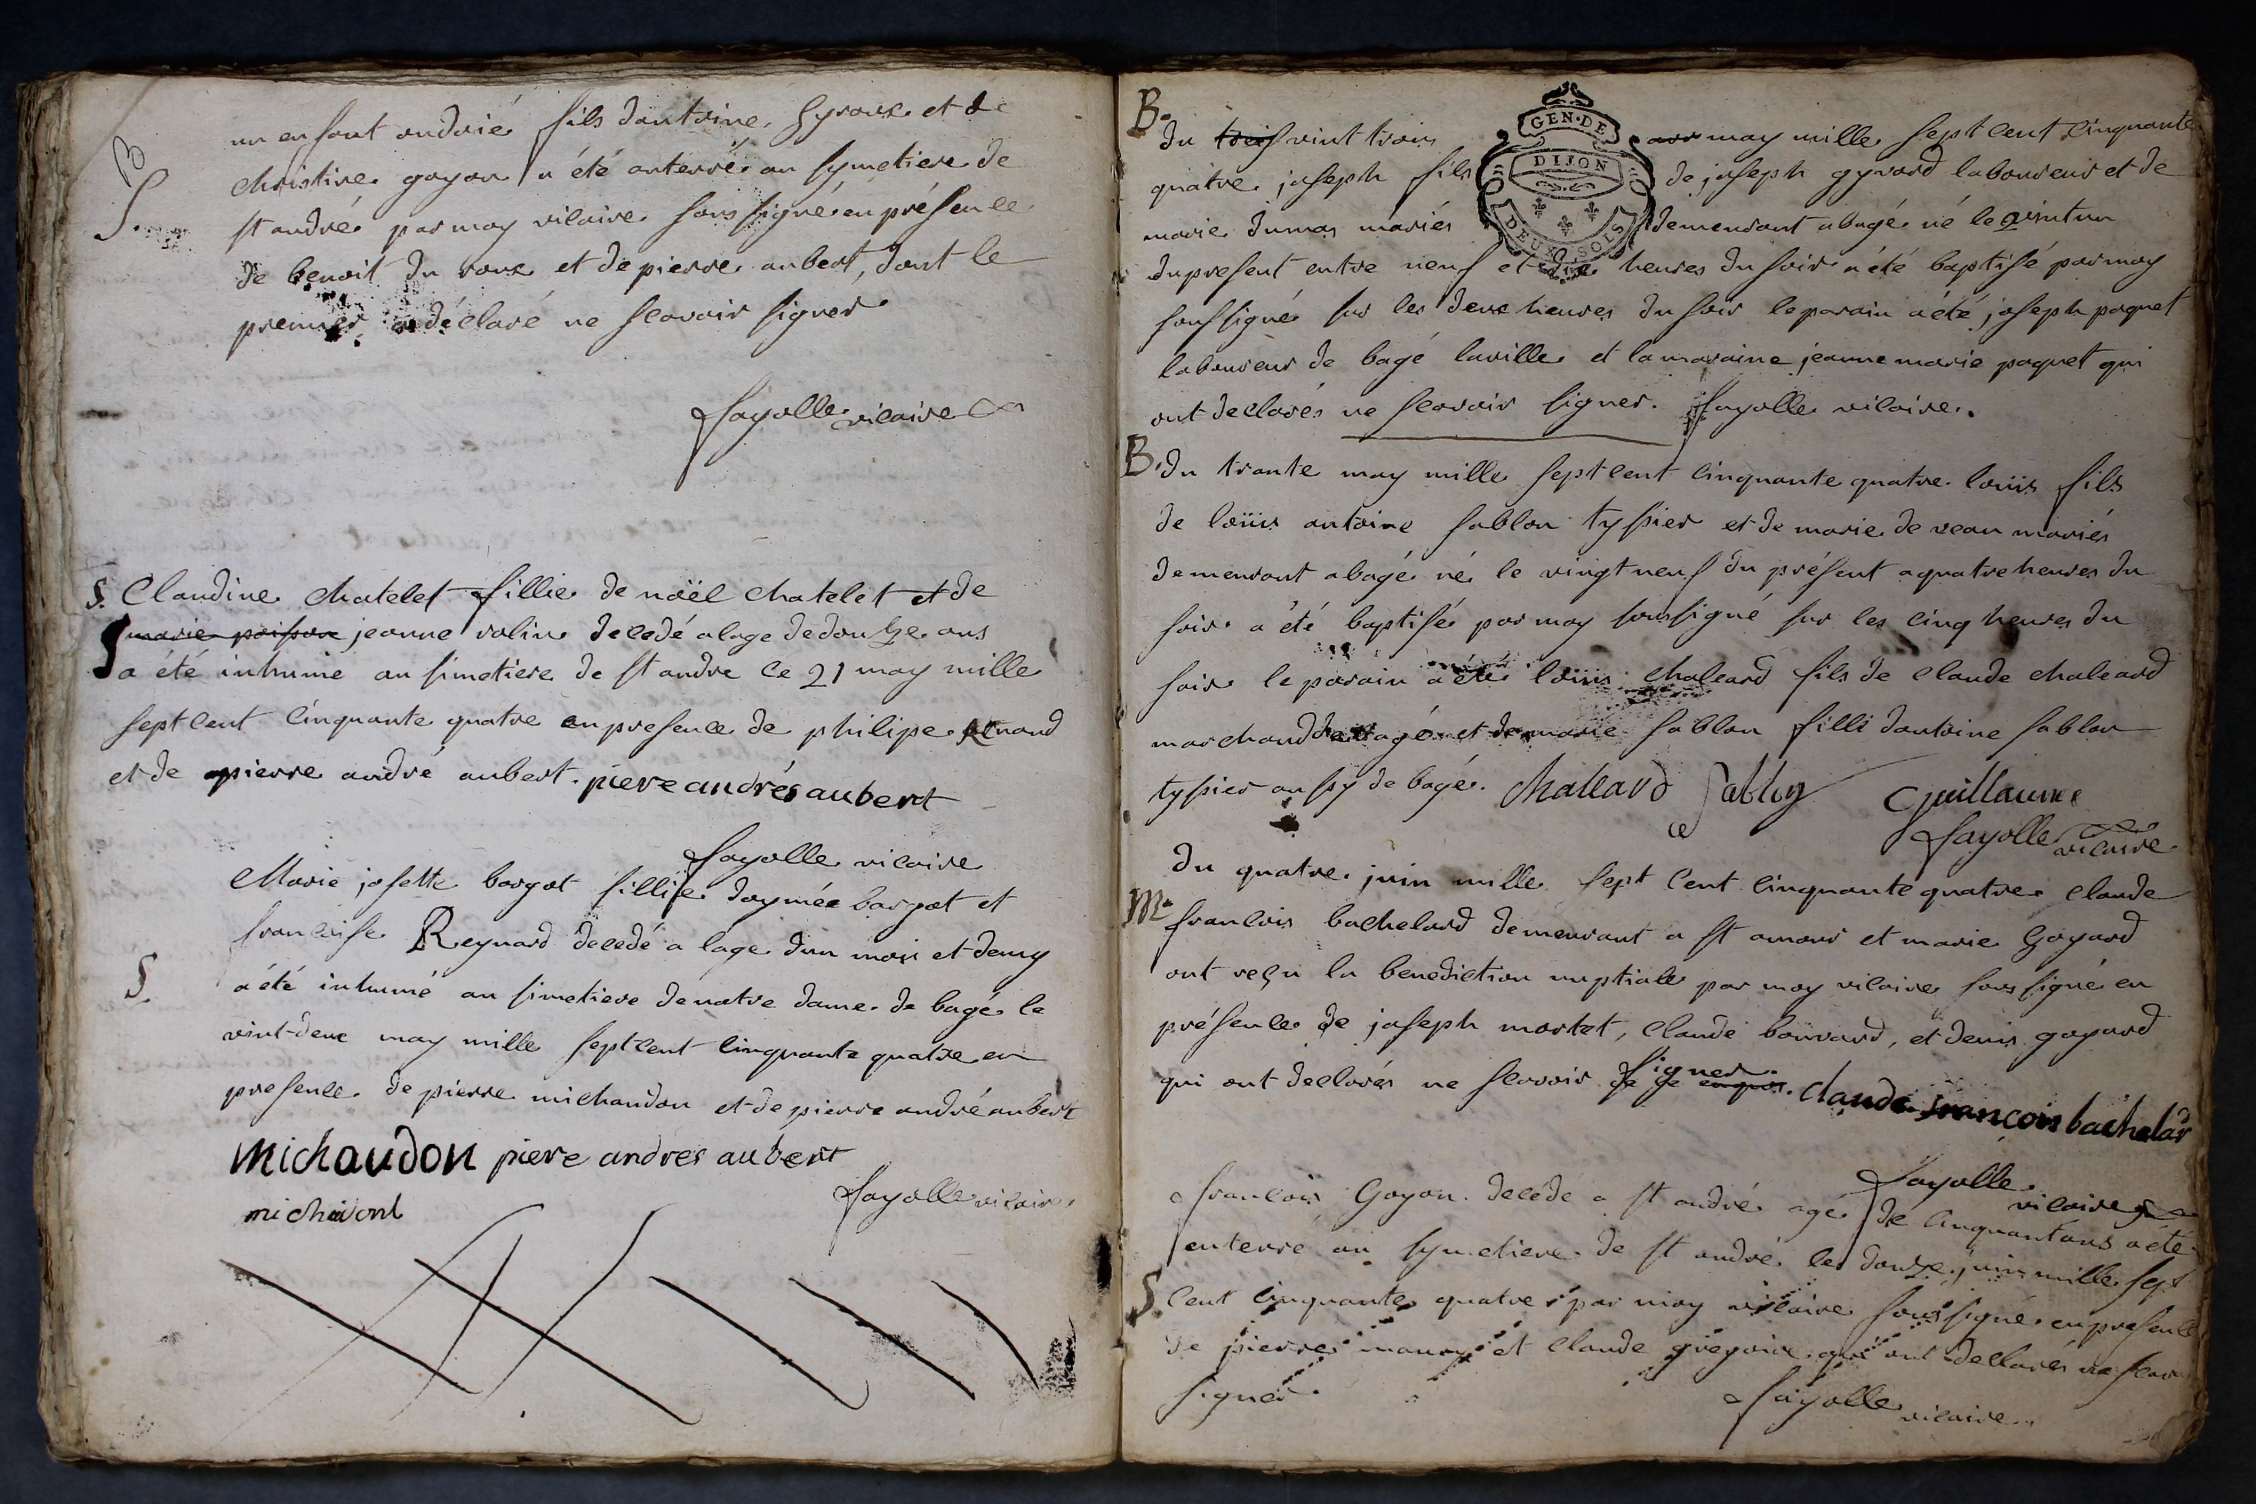 B
S.
un enfant ondoié fils dantoine gyroux et de
christine goyon a été anterré au symetiere de
st andré par moy vicaire sous signé en présence
de benoit du roux et de pierre aubert, dont le
premier a déclaré ne scavoir signer
fayolle vicaire
S. Claudine chatelet fillie de noël chatelet et de
marie poisson jeanne rolin decedé a lage de douze ans
a été inhumé au simetiere de st andre ce 21 may mille
sept cent cinquante quatre en presence de philipe
et de pierre andré aubert. piere andrés aubert
fayolle vicaire
Marie josette borgat fillie daymée borgat et
francoise Reynard decedé a lage dun mois et demy
S.
a été inhumé au simetiere de notre dame de bagé le
vint-deux may mille sept cent cinquante quatre en
presence de pierre michaudon et de pierre andré aubert
michaudon piere andrés aubert
fayolle vicaire
B. du trois vint trois may mille sept cent cinquante
quatre joseph fils de joseph gyrard laboureur et de
marie dumas mariés demeurant a bagé né le vint un
GEN. DE
DIJON
DEUX SOLS
du present entre neuf et dix heures du soir a été baptisé par moy
soussigné sur les deux heures du soir le parain a été joseph paquet
laboureur de bagé la ville et la maraine jeanne marie paquet qui
ont declarés ne scavoir signer. fayolle vicaire.
B. du trante may mille sept cent cinquante quatre loüis fils
de loüis antoine sablon tyssier et de marie de veau mariés
demeurant a bagé né le vingt neuf du présent a quatre heures du
soir a été baptisé par moy soussigné sur les cinq heures du
soir le parain a été loüis chaleard fils de claude chaleard
marchand de bagé et de marie sablon filli dantoine sablon
tyssier aussy de bagé. challard Sablon guillaume
fayolle vicaire
du quatre juin mille sept cent cinquante quatre claude
M. francois bachelard demeurant a st amour et marie goyard
ont reçu la benediction nuptiale par moy vicaire sous signé en
présence de joseph mortet, claude bouvard, et denis goyard
qui ont declarés ne scavoir signer. claude francois bachelar
fayolle vicaire
francois goyon decede a st andré agé de cinquant ans a été
enterré au symetiere de st andré le douze juin mille sept
S. cent cinquante quatre par moy vicaire sous signé en presence
de pierre maury et claude grégoire qui ont declarés ne scavoir
signer
fayolle vicaire